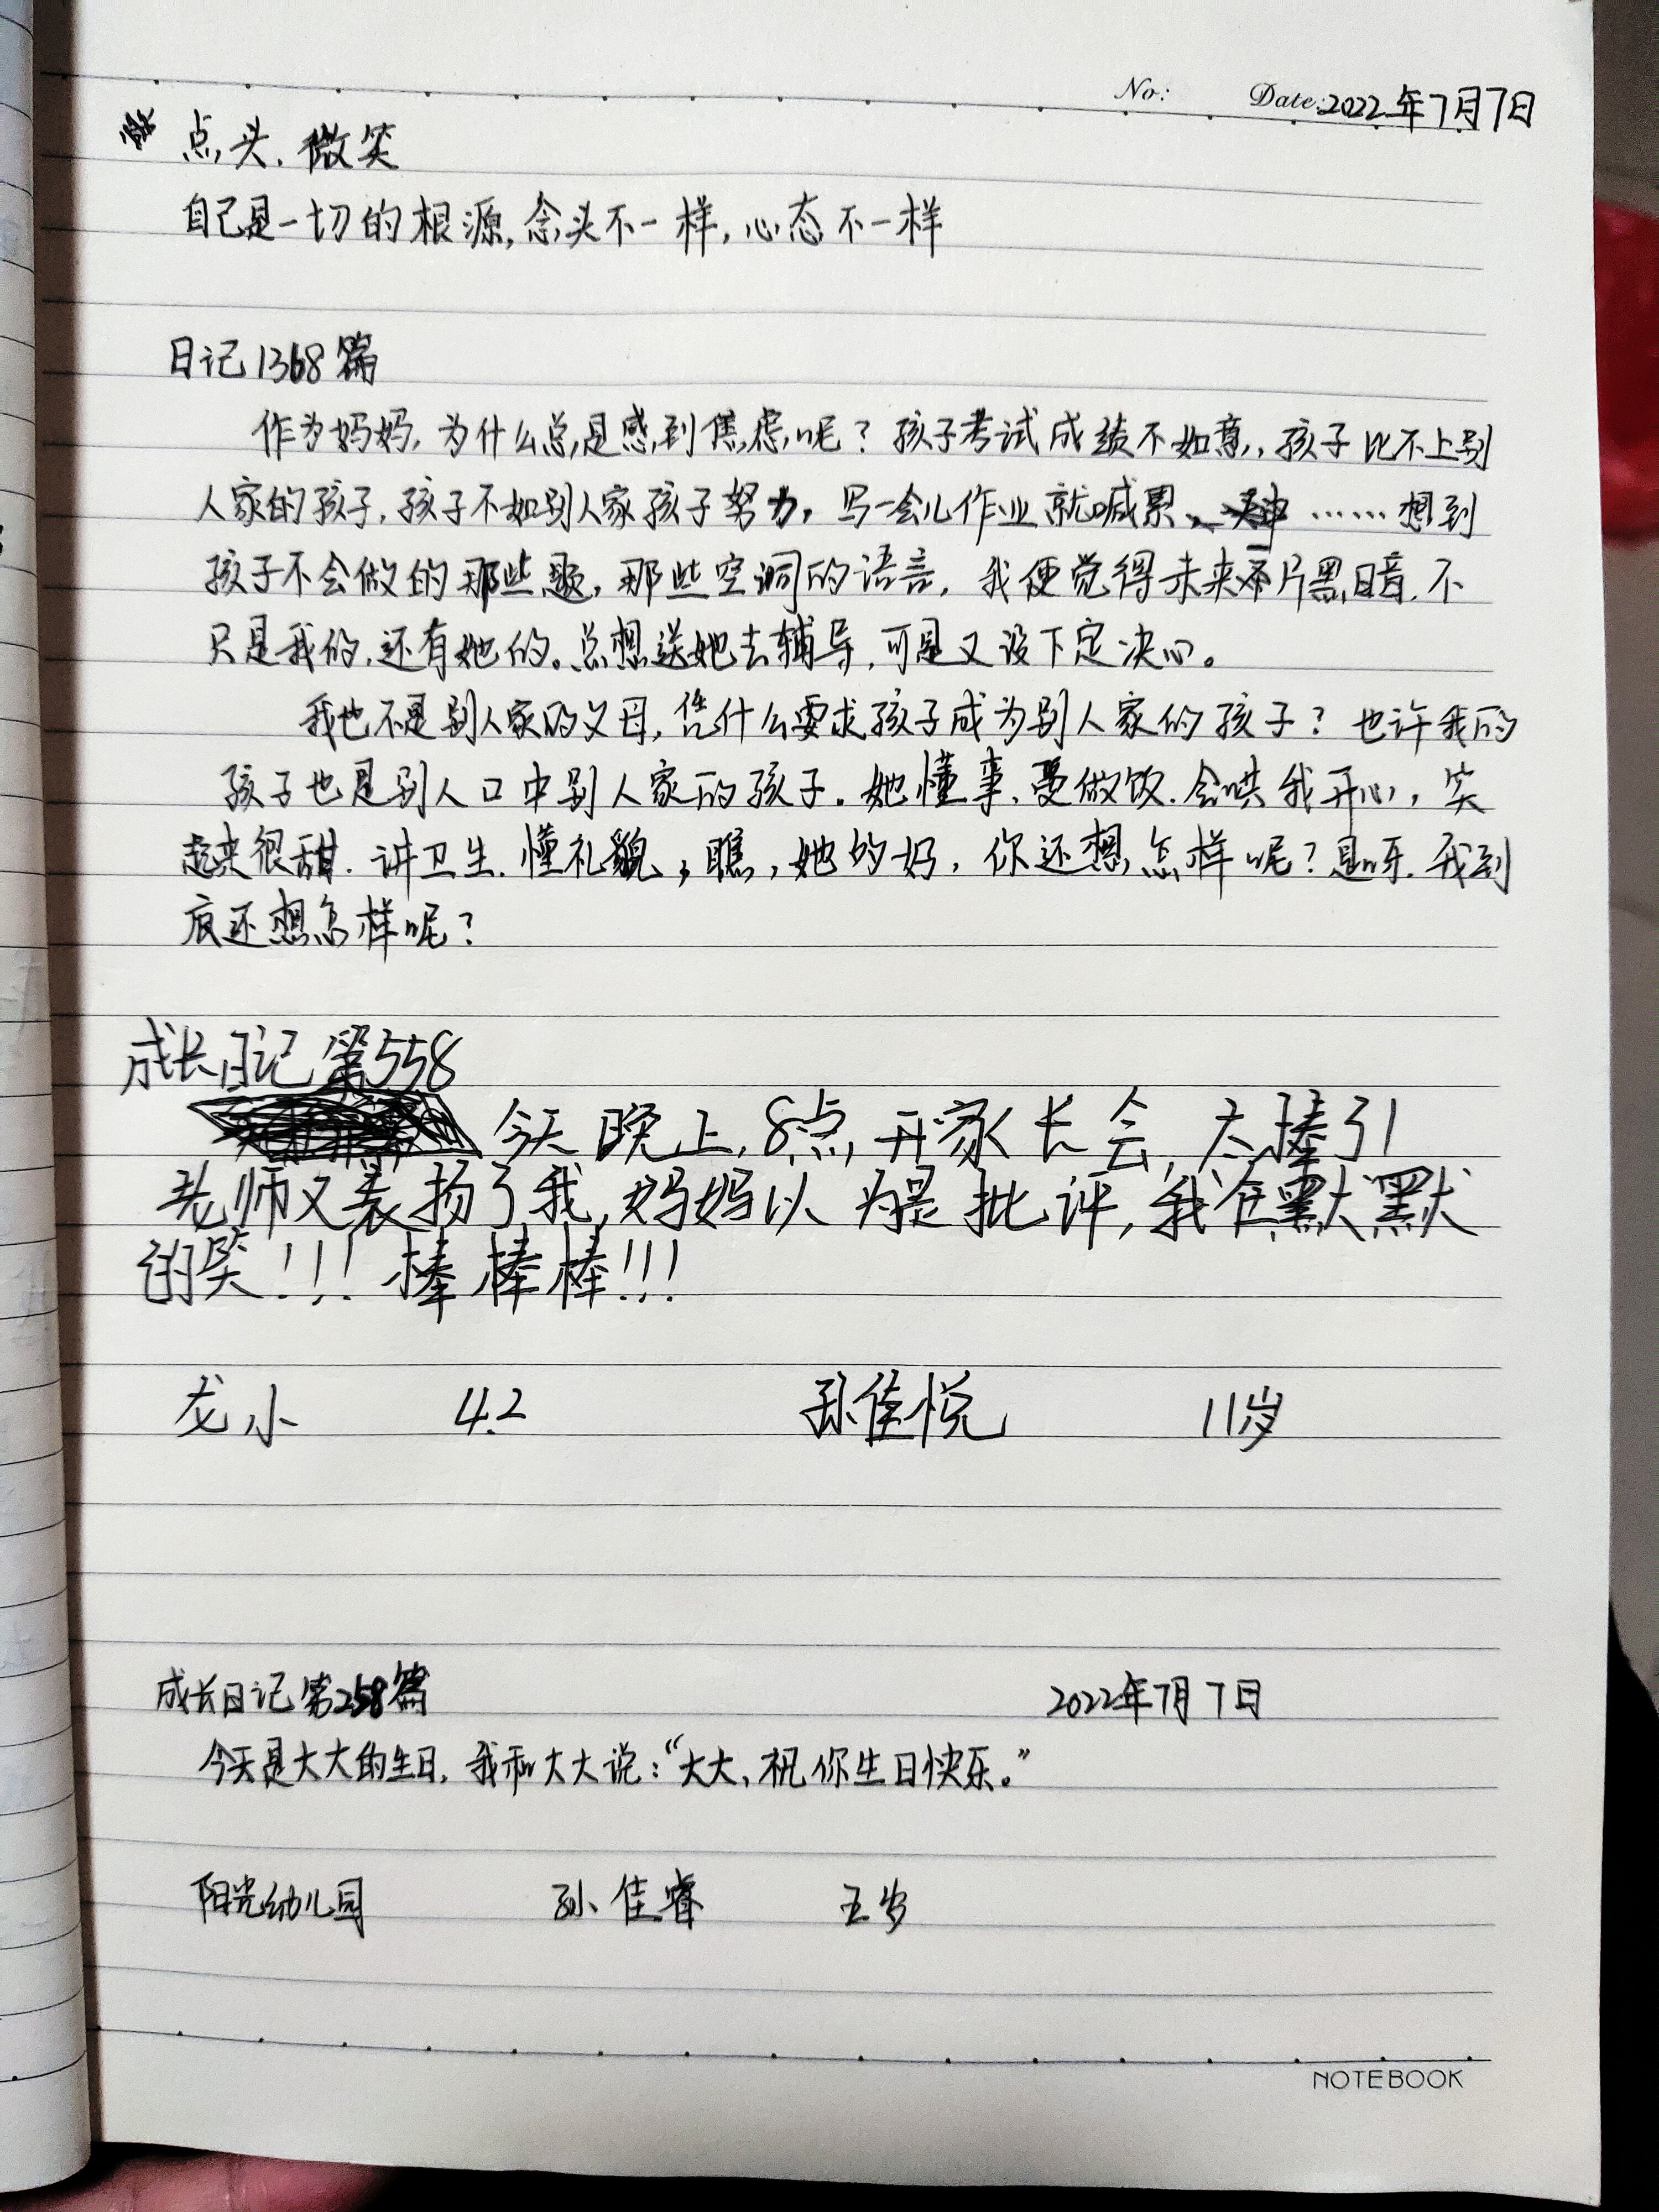 No: Date: 2022年7月7日
点头、微笑
自己是一切的根源,念头不一样,心态不一样
日记1368篇
作为妈妈,为什么总是感到焦虑呢?孩子考试成绩不如意,孩子比不上别
人家的孩子,孩子不如别人家孩子努力,写一会儿作业就喊累、……想到
孩子不会做的那些题,那些空洞的语言,我便觉得未来一片黑暗.不
只是我的,还有她的。总想送她去辅导,可是又没下定决心。
我也不是别人家的父母,凭什么要求孩子成为别人家的孩子?也许我的
孩子也是别人口中别人家的孩子.她懂事、爱做饭.会哄我开心,笑
起来很甜.讲卫生.懂礼貌,瞧,她的好,你还想怎样呢?是呀.我到
底还想怎样呢?
成长日记第558
今天晚上,8点,开家长会,太棒引
老师又表扬了我,妈妈以为是批评,我在默默
的笑!!!棒棒棒!!!
龙小 4.2 孙佳悦 11岁
成长日记第258篇 2022年7月7日
今天是大大的生日,我和大大说:“大大,祝你生日快乐。”
阳光幼儿园 孙佳睿 五岁
NOTEBOOK